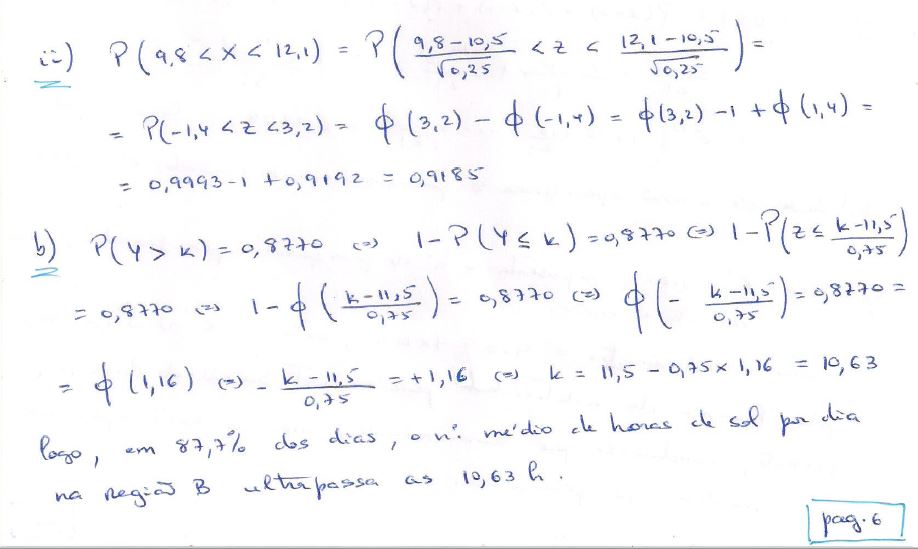 ii) P(9,8 < X < 12,1) = P( (9,8 - 10,5)/√0,25 < Z < (12,1 - 10,5)/√0,25 ) =
= P(-1,4 < Z < 3,2) = ϕ(3,2) - ϕ(-1,4) = ϕ(3,2) - 1 + ϕ(1,4) =
= 0,9993 - 1 + 0,9192 = 0,9185
b) P(Y > k) = 0,8770 (=) 1 - P(Y ≤ k) = 0,8770 (=) 1 - P( Z ≤ (k - 11,5)/0,75 )
= 0,8770 (=) 1 - ϕ( (k - 11,5)/0,75 ) = 0,8770 (=) ϕ( - (k - 11,5)/0,75 ) = 0,8770 =
= ϕ(1,16) (=) - (k - 11,5)/0,75 = +1,16 (=) k = 11,5 - 0,75 × 1,16 = 10,63
logo, em 87,7% dos dias, o nº. médio de horas de sol por dia
na região B ultrapassa as 10,63 h.
pag. 6